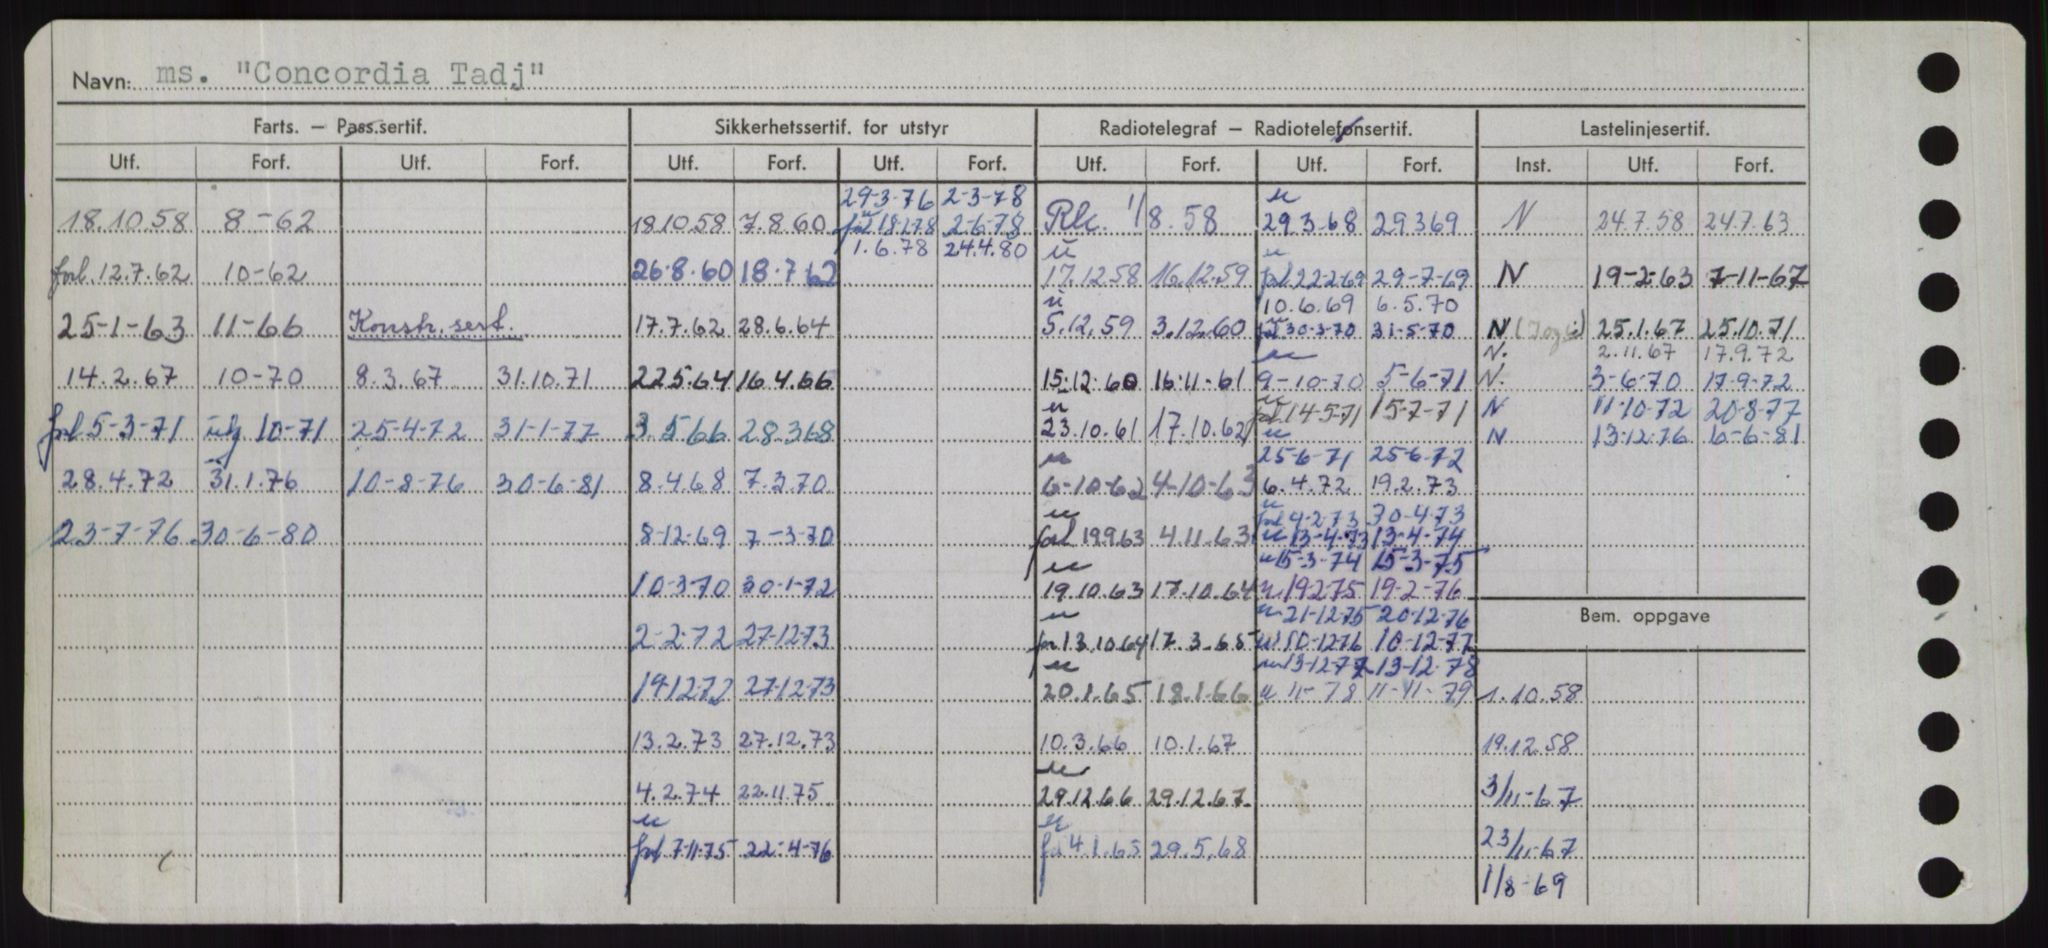 Navn: ms. "Concordia Tadj"
Farts. – Pass.sertif. Sikkerhetssertif. for utstyr Radiotelegraf – Radiotelefonsertif. Lastelinjesertif.
Utf. Forf. Utf. Forf. Utf. Forf. Utf. Forf. Utf. Forf. Utf. Forf. Inst. Utf. Forf.
29-3-76 2-3-78 u
18.10.58 8-62 18.10.58 7.8.60 18.1.78 2-6-78 Rk. 1/8.58 29.3.68 29369 N 24.7.58 24.7.63
1.6.78 24.4.80 u u
forl. 12.7.62 10-62 26.8.60 18.7.62 17.12.58 16.12.59 forl 22-2-69 29-7-69 N 19-2-63 7-11-67
u 10.6.69 6.5.70
25-1-63 11-66 Konstr. sert. 17.7.62 28.6.64 5.12.59 3.12.60 30-3-70 31-5-70 N 25.1.67 25.10.71
u N. 2.11.67 17.9.72
14.2.67 10-70 8.3.67 31.10.71 22.5.64 16.4.66 15.12.60 16.11-61 9-10-70 5-6-71 N. 3-6-70 17-9-72
u forl 14-5-71 15-7-71 N 11-10-72 20-8-77
forl 5-3-71 utg 10-71 25-4-72 31-1-77 3.5.66 28.3.68 23.10.61 17.10.62 u N 13-12-76 6-6-81
u 25-6-71 25-6-72
28.4.72 31.1.76 10-8-76 30-6-81 8.4.68 7.3.70 6-10-62 4-10-63 6.4.72 19.2.73
u forl 4-2-73 30-4-73
23-7-76 30-6-80 8-12-69 7-3-70 forl 19.9.63 4.11.63 u 13-4-73 13-4-74
u u 15-3-74 15-3-75
10-3-70 30-1-72 19.10.63 17.10.64 u 19-2-75 19-2-76
u u 21-12-75 20-12-76
2-2-72 27-12-73 13.10.64 17.3.65 u 10-12-76 10-12-77
u u 13-12-77 13-12-78
19-12-72 27-12-73 20.1.65 18.1.66 u 11-78 11-11-79
13.2.73 27.12.73 10.3.66 10.1.67
u
4.2.74 22.11.75 29.12.66 29.12.67
u u
forl 7-11-75 22-4-76 4.1.65 29.5.68
Bem. oppgave
1.10.58
19.12.58
3/11-67
23/11-67
1/8-69